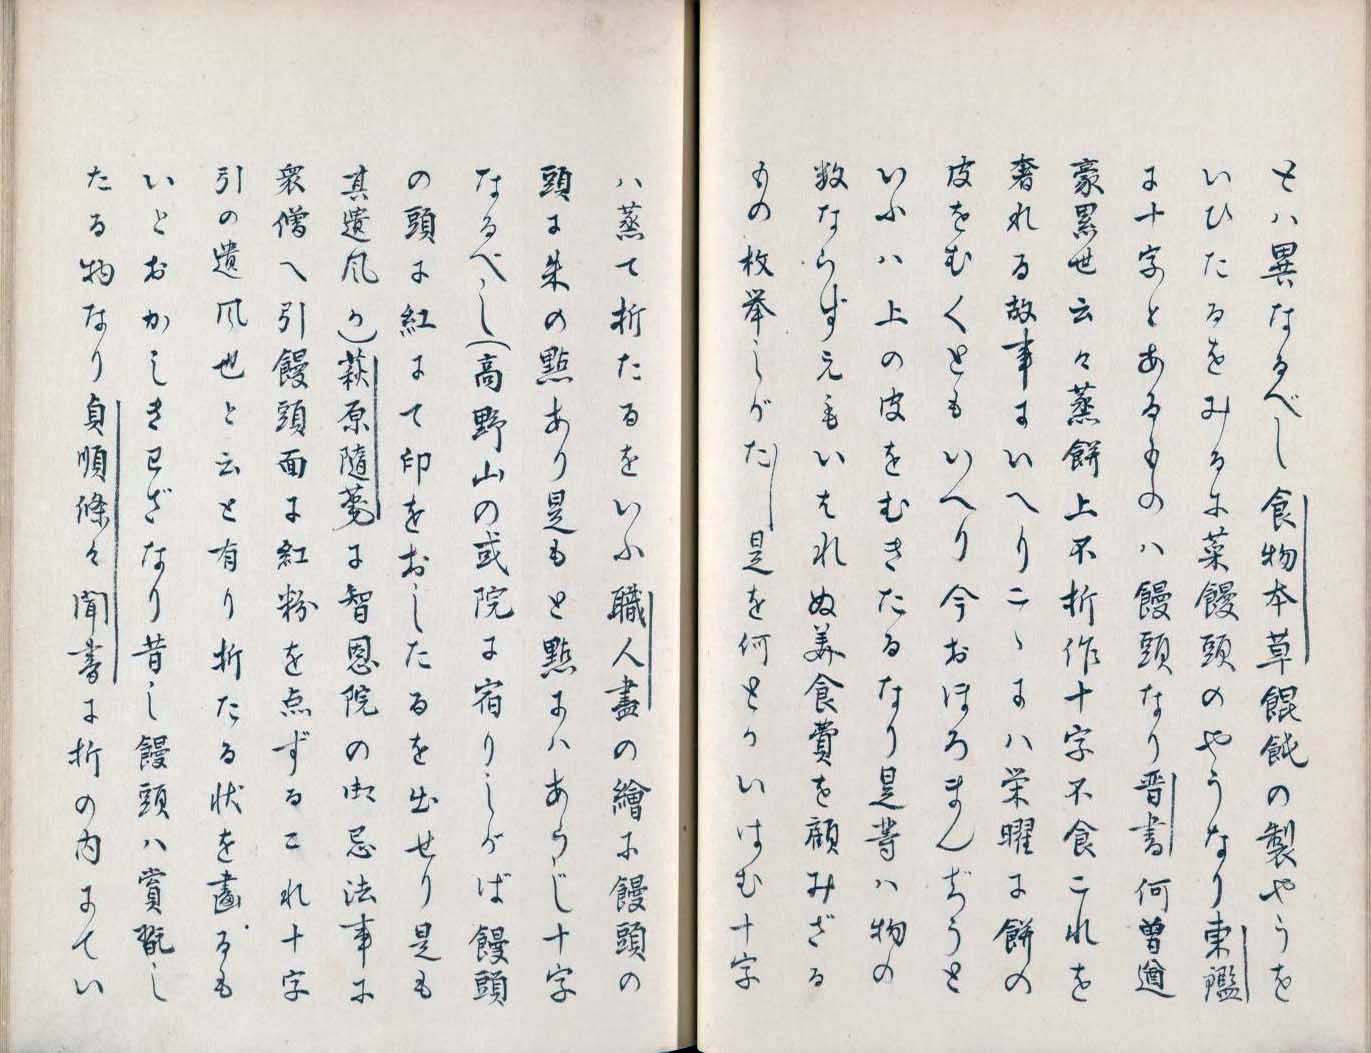 とハ異なるべし食物本草餛飩の製やうを
いひたるをみるに菜饅頭のやうなり東鑑
に十字とあるものハ饅頭なり晋書何曽遒
豪累世云々蒸餅上不折作十字不食これを
奢れる故事にいへりこゝにハ栄曜に餅の
皮をむくともいへり今おぼろまんぢうと
いふハ上の皮をむきたるなり是等ハ物の
数ならず元もいはれぬ美食費を顧みざる
もの枚挙しがたし是を何とかいはむ十字
ハ蒸て折たるをいふ職人盡の繪に饅頭の
頭に朱の點あり是もと點にハあらじ十字
なるべし(高野山の或院に宿りしがば饅頭
の頭に紅にて印をおしたるを出せり是も
其遺風か)萩原隨筆に智恩院の御忌法事に
衆僧へ引饅頭面に紅粉を点ずるこれ十字
引の遺風也と云と有り折たる状を畵るも
いとおかしきわざなり昔し饅頭ハ賞翫し
たる物なり貞順條々聞書に折の内にてい